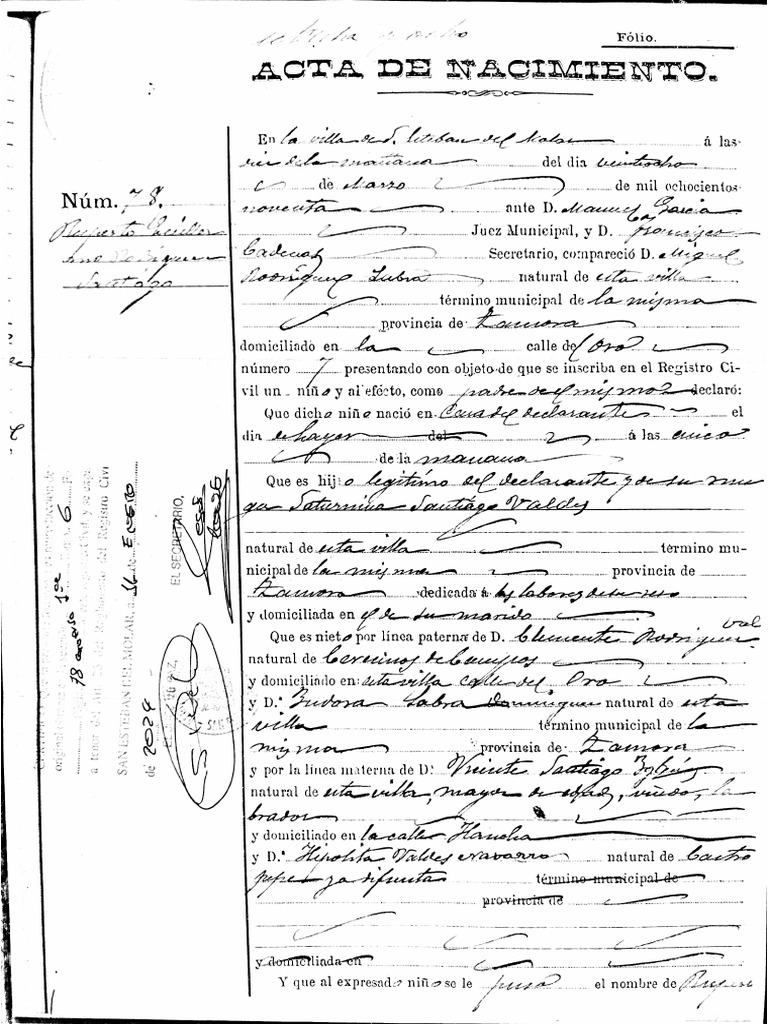 Fólio.
ACTA DE NACIMIENTO.
Núm. 78.
Ruperto
Rodriguez
Santiago
En la villa de S. Esteban del Molar á las
diez de la mañana del dia veintiocho
de Marzo de mil ochocientos
noventa ante D. Manuel Garcia
Juez Municipal, y D. Francisco
Cadenas Secretario, compareció D. Miguel
Rodriguez Lubra natural de esta villa
término municipal de la misma
provincia de Zamora
domiciliado en la calle de Oro
número 7 presentando con objeto de que se inscriba en el Registro Ci-
vil un niño y al efecto, como padre del mismo declaró:
Que dicho niño nació en Casa del declarante el
dia de hayer del á las cinco
de la mañana
Que es hijo legitimo del declarante y de su mu
ger Saturnina Santiago Valdes
natural de esta villa término mu-
nicipal de la misma provincia de
Zamora dedicada á las labores de su sexo
y domiciliada en el de su marido
Que es nieto por línea paterna de D. Clemente Rodriguez Val
natural de Cerecinos de Campos
y domiciliado en esta villa calle del Oro
y D.ª Isidora Labra Dominguez natural de esta
villa término municipal de la
misma provincia de Zamora
y por la línea materna de D. Vicente Santiago
natural de esta villa, mayor de edad, viudo, la
brador
y domiciliado en la calle
y D.ª Hipolita Valdes Navarro natural de Castro
pepe ya difunta término municipal de
provincia de
y domiciliada en
Y que al expresado niño se le puso el nombre de Ruper
EL SECRETARIO,
original
78 6
a tenor del del Reglamento del Registro Civil
SAN ESTEBAN DEL MOLAR, a 16 ENERO
de 2024